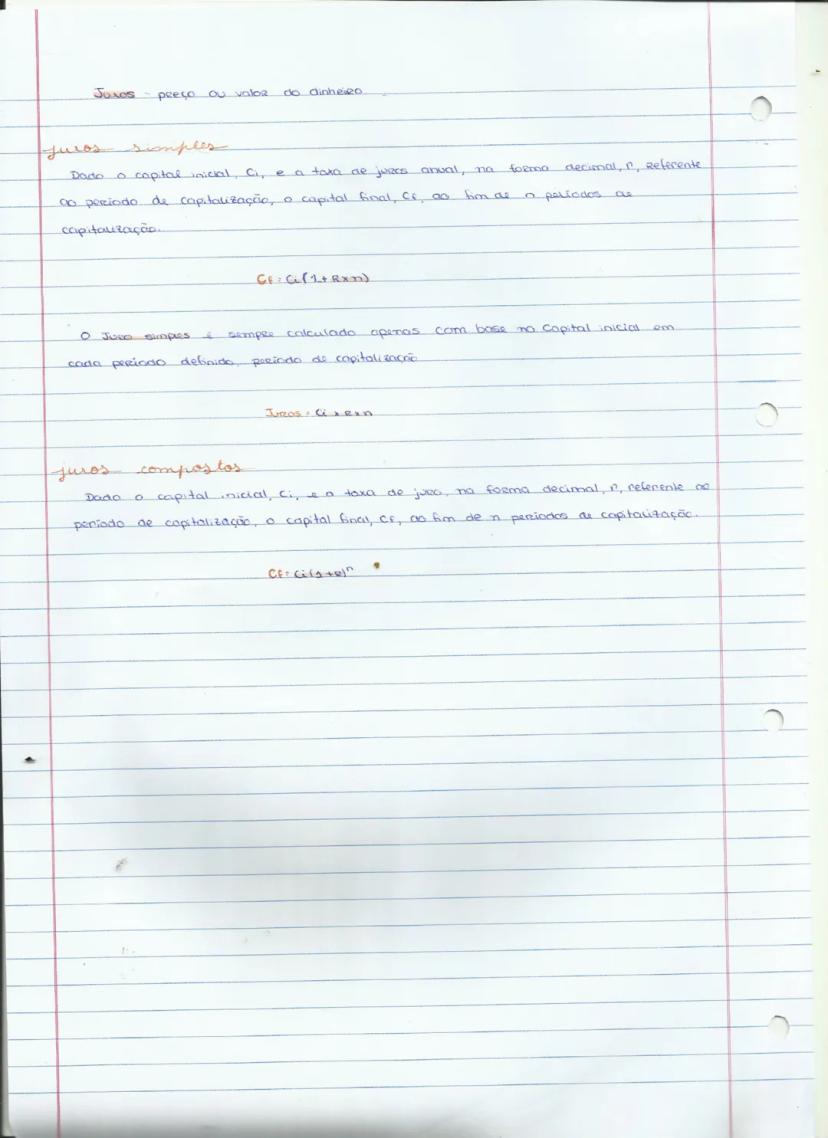 Juros - preço ou valor do dinheiro
juros simples
Dado o capital inicial, Ci, e a taxa de juros anual, na forma decimal, r, referente
ao período de capitalização, o capital final, Cf, ao fim de n períodos de
capitalização.
Cf = Ci(1+R×n)
O Juro simples é sempre calculado apenas com base no Capital inicial em
cada período definido, período de capitalização
Juros = Ci × R×n
juros compostos
Dado o capital inicial, Ci, e a taxa de juro, na forma decimal, r, referente ao
período de capitalização, o capital final, Cf, ao fim de n períodos de capitalização.
Cf = Ci(1+R)ⁿ